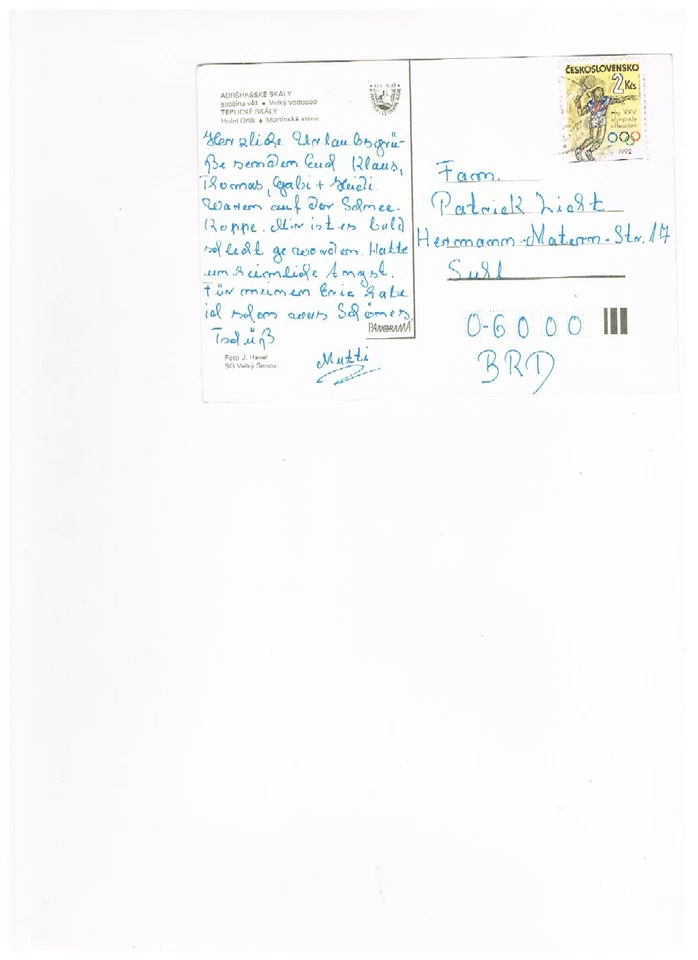 ADRŠPAŠSKÉ SKÁLY
Velký vodopád
TEPLICKÉ SKÁLY
Hotel Orlík • Martinská stěna
Herzliche Urlaubsgrü-
ße senden Euch Klaus,
Thomas, Gabi + Heidi.
Waren auf der Schnee-
koppe. Mir ist es bald
schlecht geworden. Hatte
unheimliche Angst.
Für meinen Eric habe
ich schon was Schönes.
Tschüß
Mutti
PANORAMA
Foto J. Havel
SG Velký Šenov
ČESKOSLOVENSKO
2 Kčs
Hry XXV.
olympiády
1992
Fam.
Patrick Licht
Hermann-Matern-Str. 17
Suhl
O-6000
BRD